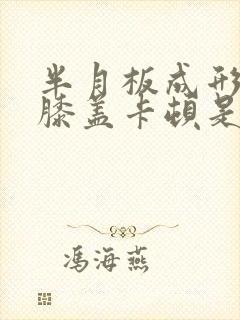 半月板成形
膝盖卡顿是
冯海燕